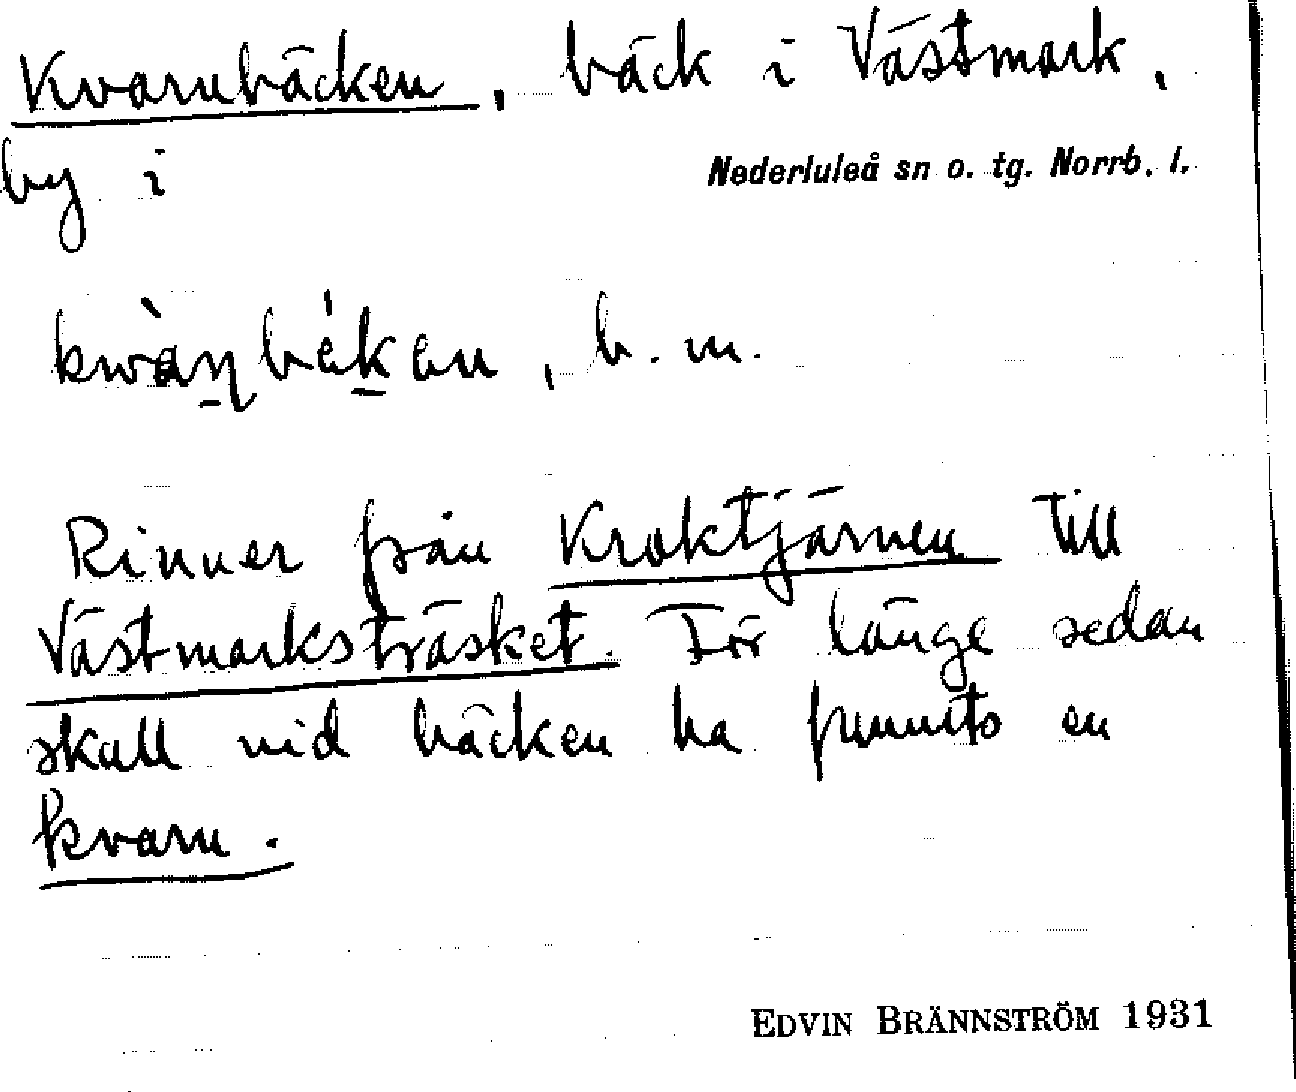 Kvarnbäcken, bäck i Västmark,
by i Nederluleå sn o. tg. Norrb. l.
kwàṇbékan, b. m.
Rinner från Kroktjärnen till
Västmarksträsket. För länge sedan
skall vid bäcken ha funnits en
kvarn.
EDVIN BRÄNNSTRÖM 1931